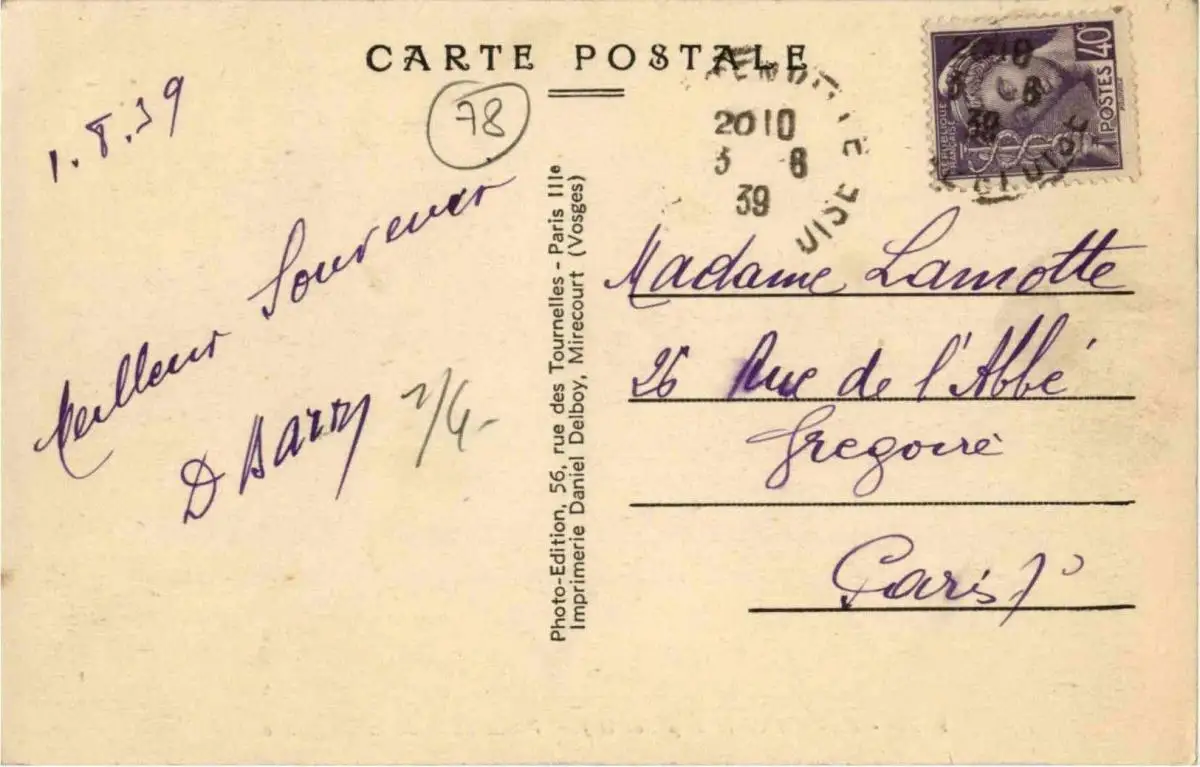 CARTE POSTALE
1.8.39
78
Meilleur Souvenir
D Barry
Photo-Edition, 56, rue des Tournelles - Paris IIIe
Imprimerie Daniel Delboy, Mirecourt (Vosges)
2010
3 8
39
OISE
40c
POSTES
REPUBLIQUE
FRANCAISE
2010
3 8
39
OISE
Madame Lamotte
26 Rue de l'Abbé
Gregoire
Paris